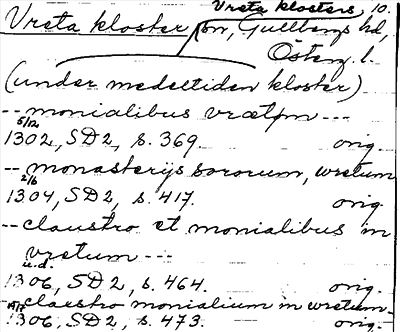 Vreta klosters 10.
Vreta kloster, sn, Gullbergs hd,
Östeg. l.
(under medeltiden kloster)
-- monialibus vrætom ---
5/12
1302, SD2, s. 369. orig.
-- monasterijs sororum, wretum
2/6
1304, SD2, s. 417. orig.
-- claustro et monialibus in
vretum ---
u.d.
1306, SD2, s. 464. orig.
-- claustro monialium in wretum-
1306, SD2, s. 473. orig.